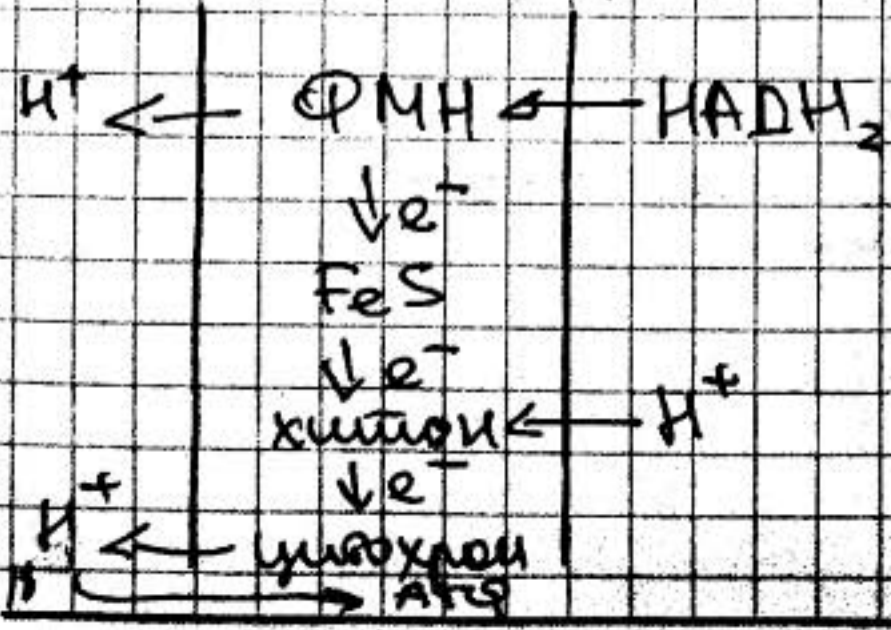 H⁺ ← ФМН ← НАДН₂
↓ e⁻
FeS
↓ e⁻
хинон ← H⁺
↓ e⁻
H⁺ ← цитохром
→ АТФ